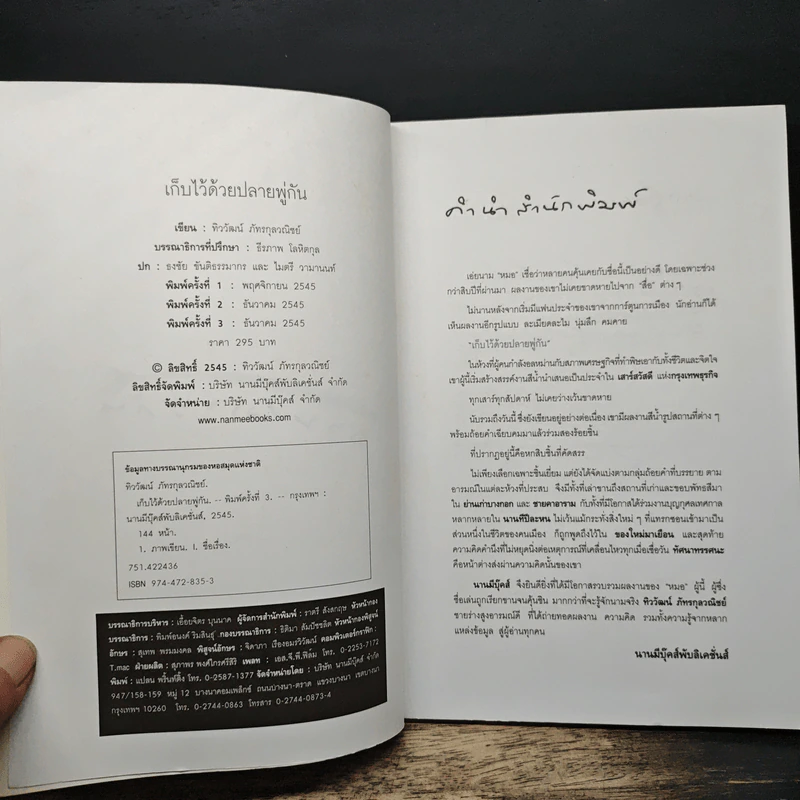 เก็บไว้ด้วยปลายพู่กัน
เขียน : ทิววัฒน์ ภัทรกุลวณิชย์
บรรณาธิการที่ปรึกษา : ธีรภาพ โลหิตกุล
ปก : ธงชัย ขันติธรรมากร และ ไมตรี วามานนท์
พิมพ์ครั้งที่ 1 : พฤศจิกายน 2545
พิมพ์ครั้งที่ 2 : ธันวาคม 2545
พิมพ์ครั้งที่ 3 : ธันวาคม 2545
ราคา 295 บาท
© ลิขสิทธิ์ 2545 : ทิววัฒน์ ภัทรกุลวณิชย์
ลิขสิทธิ์จัดพิมพ์ : บริษัท นานมีบุ๊คส์พับลิเคชั่นส์ จำกัด
จัดจำหน่าย : บริษัท นานมีบุ๊คส์ จำกัด
www.nanmeebooks.com
ข้อมูลทางบรรณานุกรมของหอสมุดแห่งชาติ
ทิววัฒน์ ภัทรกุลวณิชย์.
เก็บไว้ด้วยปลายพู่กัน. -- พิมพ์ครั้งที่ 3. -- กรุงเทพฯ :
นานมีบุ๊คส์พับลิเคชั่นส์, 2545.
144 หน้า.
1. ภาพเขียน. I. ชื่อเรื่อง.
751.422436
ISBN 974-472-835-3
บรรณาธิการบริหาร : เอื้อยจิตร บุนนาค ผู้จัดการสำนักพิมพ์ : ราตรี สังสกฤษ หัวหน้ากอง
บรรณาธิการ : พิมพ์อนงค์ ริมสินธุ์ กองบรรณาธิการ : ธิติมา สัมปัชชลิต หัวหน้ากองพิสูจน์
อักษร : สุเทพ พรมมงคล พิสูจน์อักษร : จิดาภา เรืองอมรวิวัฒน์ คอมพิวเตอร์กราฟิก :
T.mac ฝ่ายผลิต : สุภาพร พงศ์ไกรศรีสิริ เพลท : เอส.จี.พี.ฟิล์ม โทร. 0-2253-7172
พิมพ์ : แปลน พริ้นท์ติ้ง โทร. 0-2587-1377 จัดจำหน่ายโดย : บริษัท นานมีบุ๊คส์ จำกัด
947/158-159 หมู่ 12 บางนาคอมเพล็กซ์ ถนนบางนา-ตราด แขวงบางนา เขตบางนา
กรุงเทพฯ 10260 โทร. 0-2744-0863 โทรสาร 0-2744-0873-4
คำนำสำนักพิมพ์
เอ่ยนาม "หมอ" เชื่อว่าหลายคนคุ้นเคยกับชื่อนี้เป็นอย่างดี โดยเฉพาะช่วง
กว่าสิบปีที่ผ่านมา ผลงานของเขาไม่เคยขาดหายไปจาก "สื่อ" ต่าง ๆ
ไม่นานหลังจากเริ่มมีแฟนประจำของเขาจากการ์ตูนการเมือง นักอ่านก็ได้
เห็นผลงานอีกรูปแบบ ละเมียดละไม นุ่มลึก คมคาย
"เก็บไว้ด้วยปลายพู่กัน"
ในห้วงที่ผู้คนกำลังอลหม่านกับสภาพเศรษฐกิจที่ทำพิษเอากับทั้งชีวิตและจิตใจ
เขาผู้นี้เริ่มสร้างสรรค์งานสีน้ำนำเสนอเป็นประจำใน เสาร์สวัสดี แห่งกรุงเทพธุรกิจ
ทุกเสาร์ทุกสัปดาห์ ไม่เคยว่างเว้นขาดหาย
นับรวมถึงวันนี้ ซึ่งยังเขียนอยู่อย่างต่อเนื่อง เขามีผลงานสีน้ำรูปสถานที่ต่าง ๆ
พร้อมถ้อยคำเฉียบคมมาแล้วร่วมสองร้อยชิ้น
ที่ปรากฏอยู่นี้คือหกสิบชิ้นที่คัดสรร
ไม่เพียงเลือกเฉพาะชิ้นเยี่ยม แต่ยังได้จัดแบ่งตามกลุ่มถ้อยคำที่บรรยาย ตาม
อารมณ์ในแต่ละห้วงที่ประสบ จึงมีทั้งที่เล่าขานถึงสถานที่เก่าและขอบพัทธสีมา
ใน ย่านเก่าบางกอก และ ชายคาอาราม กับทั้งที่มีโอกาสได้ร่วมงานบุญกุศลเทศกาล
หลากหลายใน นานทีปีละหน ไม่เว้นแม้กระทั่งสิ่งใหม่ ๆ ที่แทรกซอนเข้ามาเป็น
ส่วนหนึ่งในชีวิตของคนเมือง ก็ถูกพูดถึงไว้ใน ของใหม่มาเยือน และสุดท้าย
ความคิดคำนึงที่ไม่หยุดนิ่งต่อเหตุการณ์ที่เคลื่อนไหวทุกเมื่อเชื่อวัน ทัศนาทรรศนะ
คือหน้าต่างส่งผ่านความคิดนั้นของเขา
นานมีบุ๊คส์ จึงยินดียิ่งที่ได้มีโอกาสรวบรวมผลงานของ "หมอ" ผู้นี้ ผู้ซึ่ง
ชื่อเล่นถูกเรียกขานจนคุ้นชิน มากกว่าที่จะรู้จักนามจริง ทิววัฒน์ ภัทรกุลวณิชย์
ชายร่างสูงอารมณ์ดี ที่ได้ถ่ายทอดผลงาน ความคิด รวมทั้งความรู้จากหลาก
แหล่งข้อมูล สู่ผู้อ่านทุกคน
นานมีบุ๊คส์พับลิเคชั่นส์